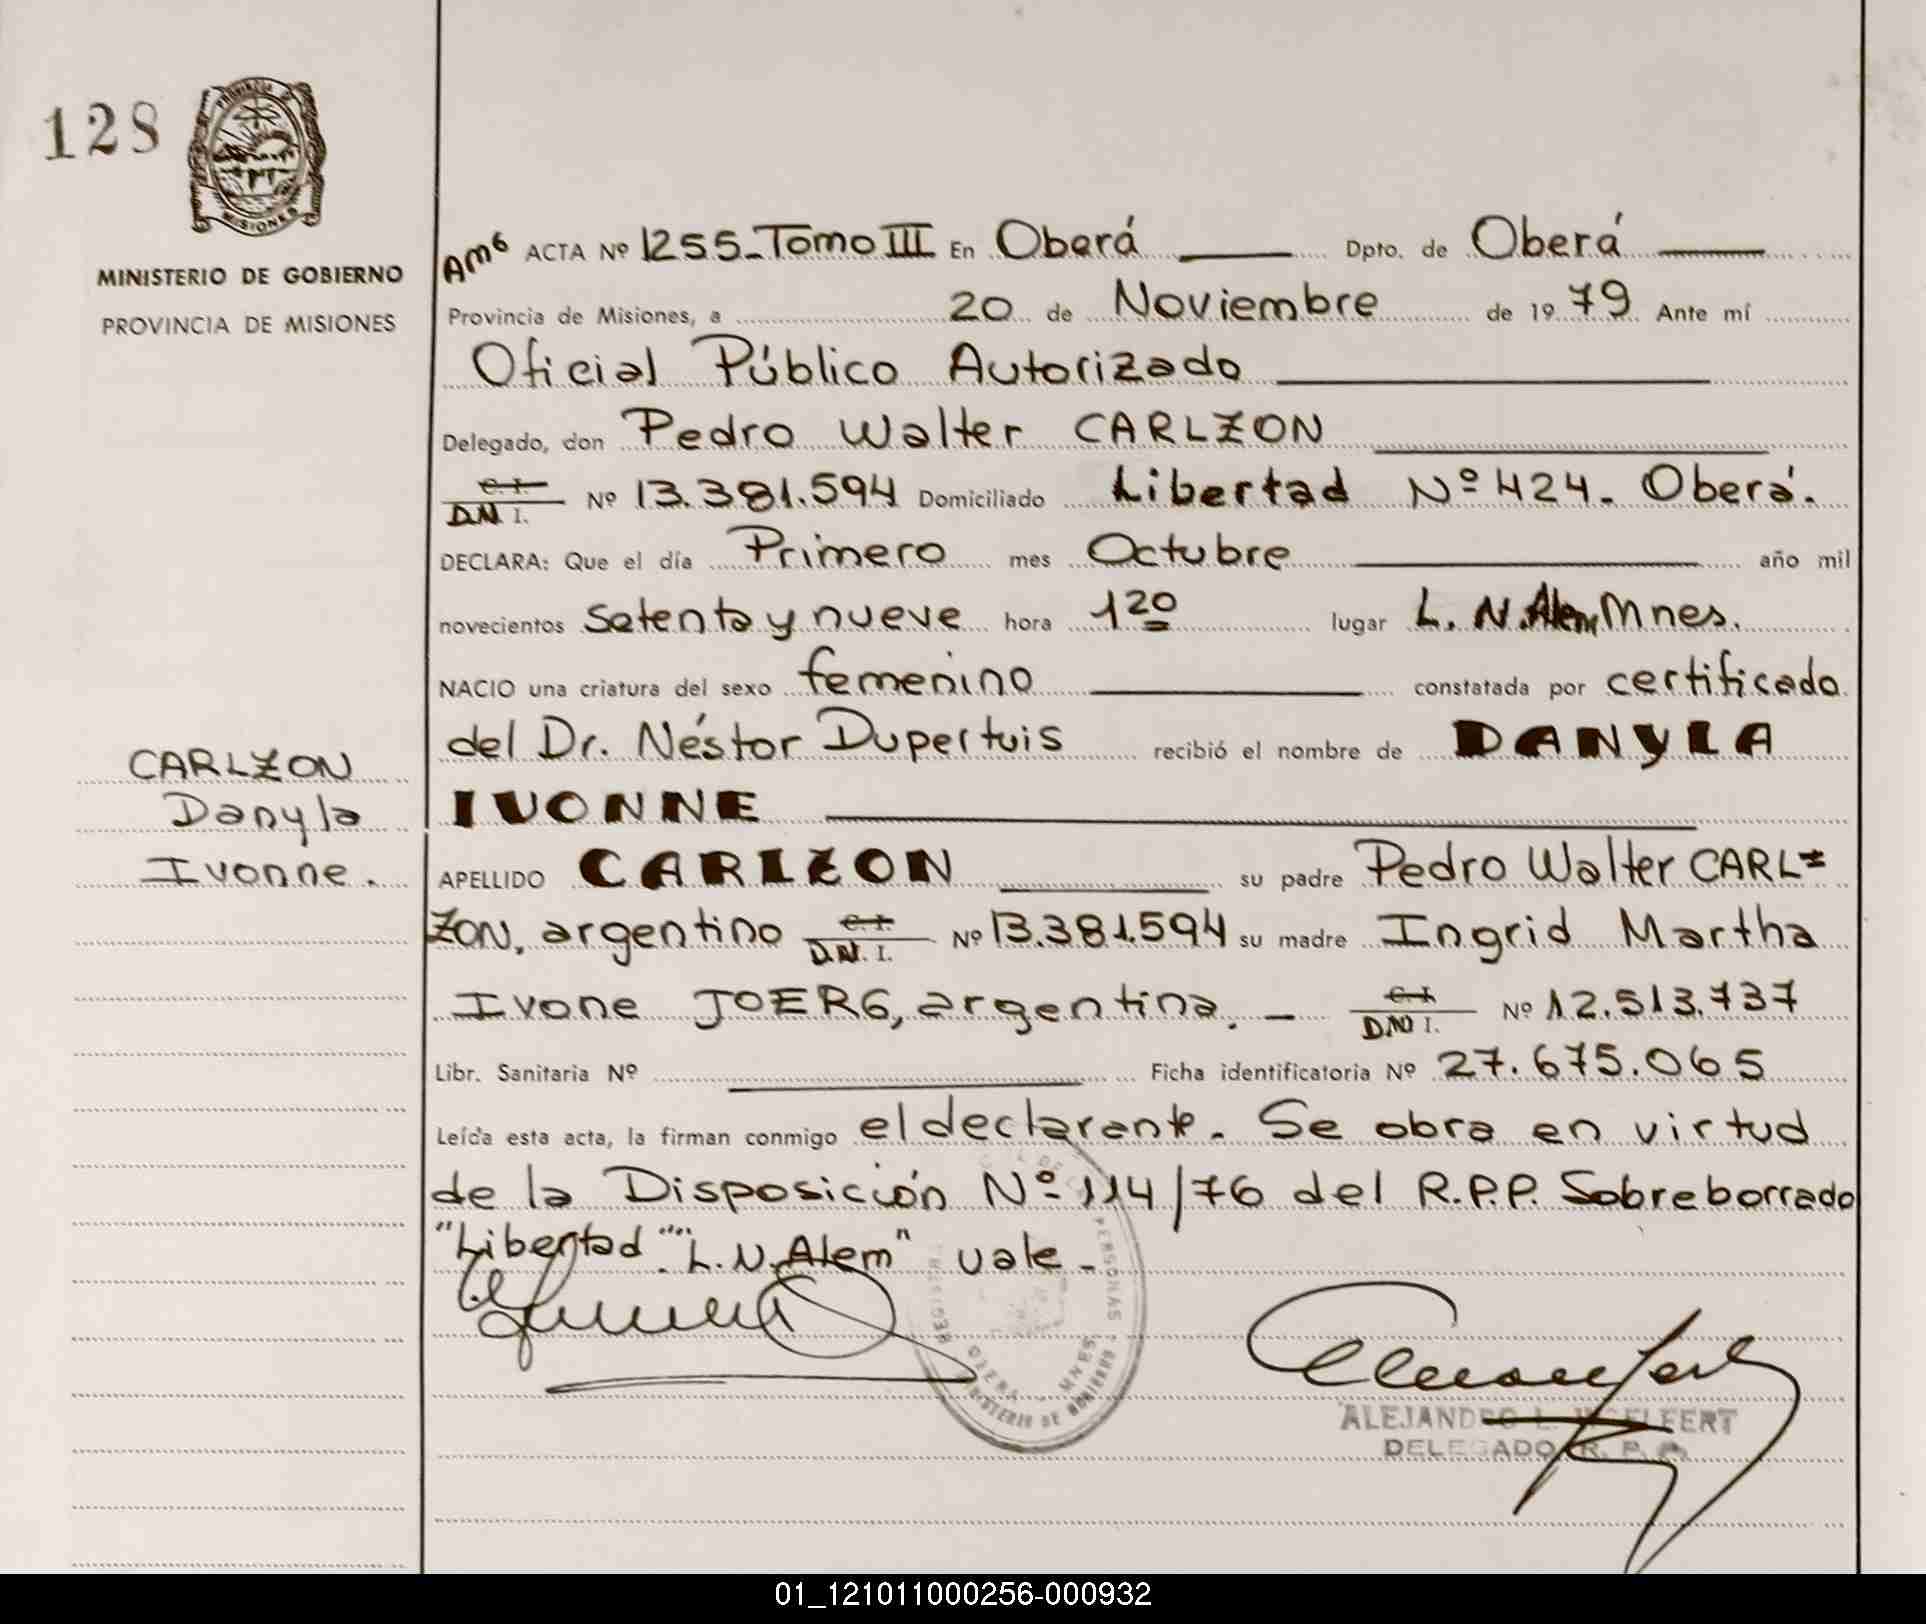 128
PROVINCIA DE
MISIONES
MINISTERIO DE GOBIERNO
PROVINCIA DE MISIONES
CARLZON
Danyla
Ivonne.
Am6 ACTA Nº 1255-Tomo III En Oberá Dpto. de Oberá
Provincia de Misiones, a 20 de Noviembre de 1979 Ante mí
Oficial Público Autorizado
Delegado, don Pedro Walter CARLZON
C.I. D.N.I. Nº 13.381.594 Domiciliado Libertad Nº 424. Oberá.
DECLARA: Que el día Primero mes Octubre año mil
novecientos setenta y nueve hora 1 20 lugar L. N. Alem, Mnes.
NACIO una criatura del sexo femenino constatada por certificado
del Dr. Néstor Dupertuis recibió el nombre de DANYLA
IVONNE
APELLIDO CARLZON su padre Pedro Walter CARL=
ZON, argentino C.I. D.N.I. Nº 13.381.594 su madre Ingrid Martha
Ivone JOERG, argentina. - C.I. D.N.I. Nº 12.513.737
Libr. Sanitaria Nº Ficha identificatoria Nº 27.675.065
Leída esta acta, la firman conmigo el declarante. Se obra en virtud
de la Disposición Nº 114/76 del R.P.P. Sobreborrado
"Libertad" "L. N. Alem" vale-
PERSONAS
OBERA - MNES
MINISTERIO DE GOBIERNO
ALEJANDRO L.
DELEGADO R. P. P.
01_121011000256-000932